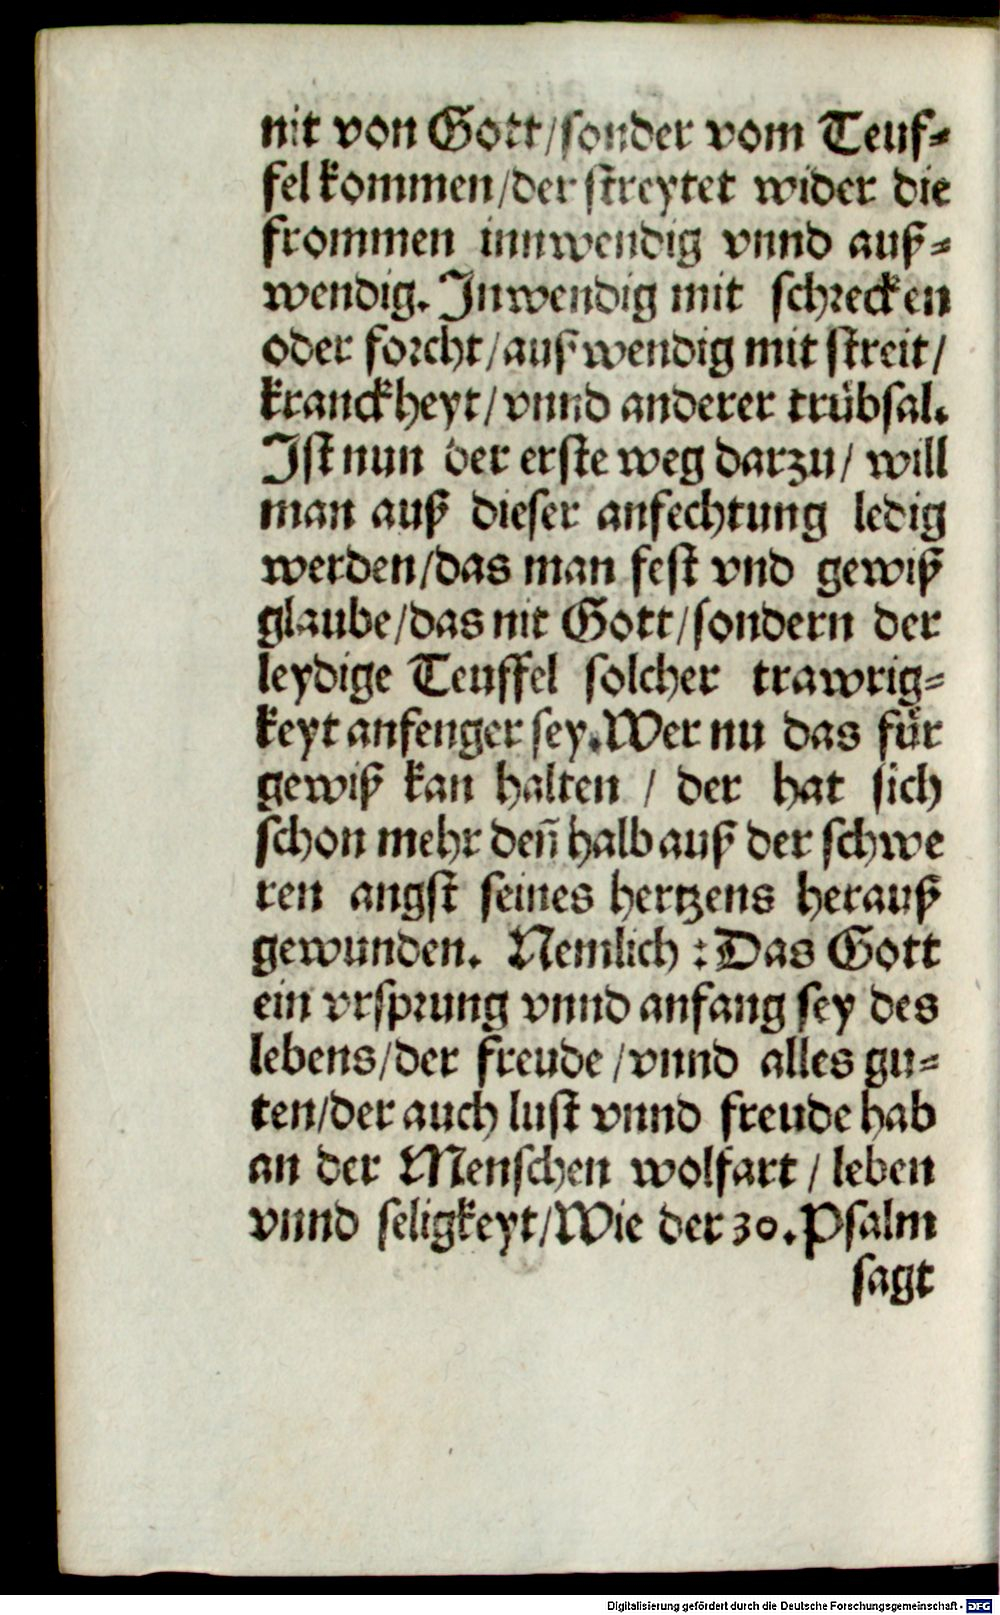 nit von Gott/sonder vom Teuf-
fel kommen/der streytet wider die
frommen innwendig vnnd auß-
wendig. Inwendig mit schrecken
oder forcht/außwendig mit streit/
kranckheyt/vnnd anderer trübsal.
Ist nun der erste weg darzu/ will
man auß dieser anfechtung ledig
werden/das man fest vnd gewiß
glaube/das nit Gott/sondern der
leydige Teuffel solcher trawrig-
keyt anfenger sey. Wer nu das für
gewiß kan halten / der hat sich
schon mehr deñ halb auß der schwe
ren angst seines hertzens herauß
gewunden. Nemlich : Das Gott
ein vrsprung vnnd anfang sey des
lebens/der freude /vnnd alles gu-
ten/der auch lust vnnd freude hab
an der Menschen wolfart / leben
vnnd seligkeyt/Wie der 30. Psalm
sagt
Digitalisierung gefördert durch die Deutsche Forschungsgemeinschaft - DFG